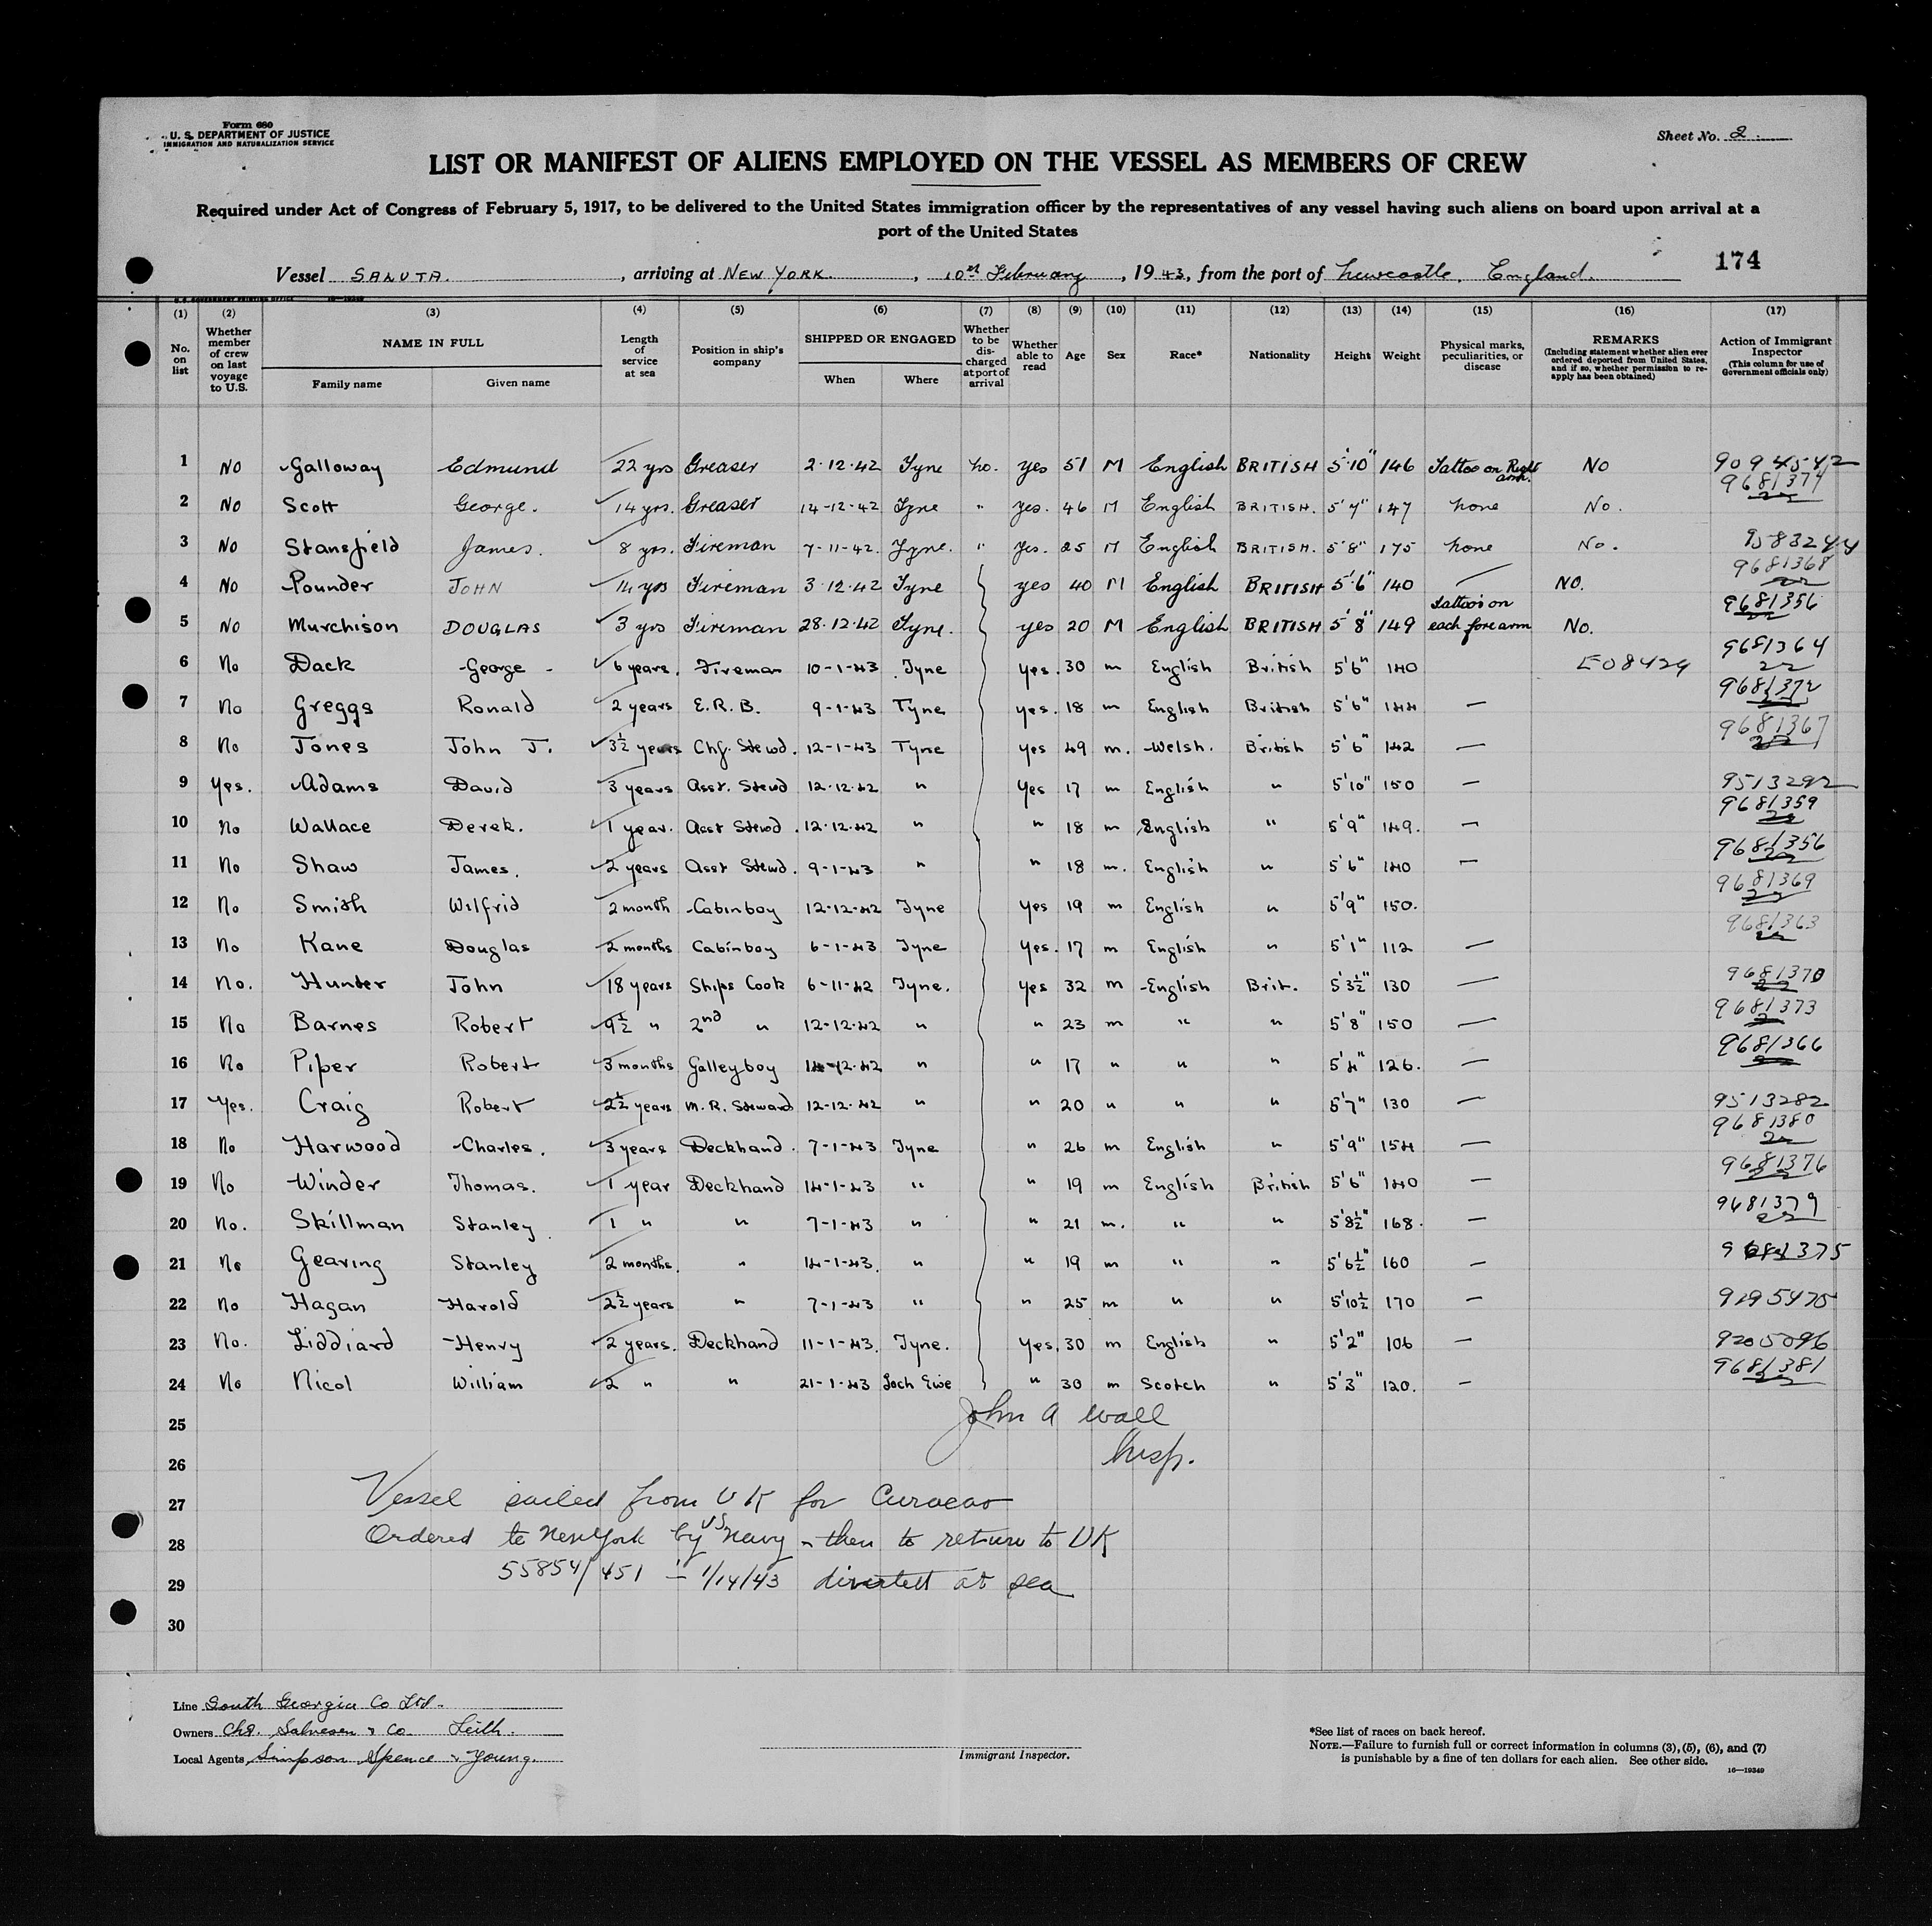 Form 680
U. S. DEPARTMENT OF JUSTICE
IMMIGRATION AND NATURALIZATION SERVICE
Sheet No. 2
LIST OR MANIFEST OF ALIENS EMPLOYED ON THE VESSEL AS MEMBERS OF CREW
Required under Act of Congress of February 5, 1917, to be delivered to the United States immigration officer by the representatives of any vessel having such aliens on board upon arrival at a
port of the United States
174
Vessel SALUTA., arriving at NEW YORK., 10th February, 1943, from the port of Newcastle, England.
U. S. GOVERNMENT PRINTING OFFICE 16—19349
(1) (2) (3) (4) (5) (6) (7) (8) (9) (10) (11) (12) (13) (14) (15) (16) (17)
No. on list
Whether member of crew on last voyage to U.S.
NAME IN FULL
Family name Given name
Length of service at sea
Position in ship's company
SHIPPED OR ENGAGED
When Where
Whether to be discharged at port of arrival
Whether able to read
Age
Sex
Race*
Nationality
Height
Weight
Physical marks, peculiarities, or disease
REMARKS
(Including statement whether alien ever ordered deported from United States, and if so, whether permission to re-apply has been obtained)
Action of Immigrant Inspector
(This column for use of Government officials only)
1 No Galloway Edmund 22 yrs Greaser 2·12·42 Tyne no. yes 51 M English BRITISH 5'·10" 146 Tattoo on Right arm. NO 9094542
2 No Scott George. 14 yrs. Greaser 14-12-42 Tyne " yes. 46 M English BRITISH. 5'7" 147 none No. 9681377
3 No Stansfield James. 8 yrs. Fireman 7-11-42. Tyne. " Yes. 25 M English BRITISH. 5'8" 175 none No. 9583244
4 No Pounder JOHN 14 yrs Fireman 3·12·42 Tyne yes 40 M English BRITISH 5'·6" 140 — NO. 9681368
5 No Murchison DOUGLAS 3 yrs Fireman 28·12·42 Tyne. yes 20 M English BRITISH 5'8" 149 Tattoo's on each forearm No. 9681356
6 No Dack George 6 years. Fireman 10-1-43 Tyne Yes. 30 m English British 5'6" 140 E08429 9681364
7 No Greggs Ronald 2 years E.R.B. 9-1-43 Tyne yes. 18 m English British 5'6" 144 — 9681372
8 No Jones John J. 3½ years Chf. Stewd. 12-1-43 Tyne Yes 49 m. Welsh. British 5'6" 142 — 9681367
9 Yes. Adams David 3 years Asst. Stewd 12·12·42 " Yes 17 m English " 5'10" 150 — 9513292
10 No Wallace Derek. 1 year. Asst Stewd. 12·12·42 " " 18 m English " 5'9" 149. — 9681359
11 No Shaw James. 2 years Asst Stewd. 9-1-43 " " 18 m. English " 5'6" 140 — 9681356
12 No Smith Wilfrid 2 month Cabinboy 12-12-42 Tyne Yes 19 m English " 5'9" 150. 9681369
13 No Kane Douglas 2 months Cabinboy 6-1-43 Tyne Yes. 17 m English " 5'1" 112 — 9681363
14 No. Hunter John 18 years Ships Cook 6-11-42 Tyne. Yes 32 m English Brit. 5'3½" 130 — 9681370
15 No Barnes Robert 9½ " 2nd " 12-12-42 " " 23 m " " 5'8" 150 — 9681373
16 No Piper Robert 3 months Galleyboy 14-12-42 " " 17 " " " 5'4" 126. — 9681366
17 Yes. Craig Robert 2½ years M.R. Steward 12-12-42 " " 20 " " " 5'7" 130 — 9513282
18 No Harwood Charles. 3 years Deckhand. 7-1-43 Tyne " 26 m English " 5'9" 154 — 9681380
19 No Winder Thomas. 1 year Deckhand 14-1-43 " " 19 m English British 5'6" 140 — 9681376
20 No. Skillman Stanley. 1 " " 7-1-43 " " 21 m. " " 5'8½" 168. — 9681379
21 No Gearing Stanley 2 months. " 14-1-43. " " 19 m " " 5'6½" 160 — 9681375
22 No Hagan Harold 2½ years " 7-1-43 " " 25 m " " 5'10½ 170 — 9195475
23 No. Liddiard Henry 2 years. Deckhand 11-1-43. Tyne. Yes. 30 m English " 5'2" 106 — 9205096
24 No Nicol William 2 " " 21-1-43 Loch Ewe " 30 m Scotch " 5'3" 120. — 9681381
25 John A Wall
26 Insp.
27 Vessel sailed from UK for Curacao
28 Ordered to New York by US Navy - then to return to UK
29 55854/451 - 1/14/43 diverted at sea
30
Line South Georgia Co Ltd.
Owners Chr. Salvesen & Co. Leith.
Local Agents Simpson Spence & Young.
Immigrant Inspector.
*See list of races on back hereof.
NOTE.—Failure to furnish full or correct information in columns (3), (5), (6), and (7)
is punishable by a fine of ten dollars for each alien. See other side.
16—19349